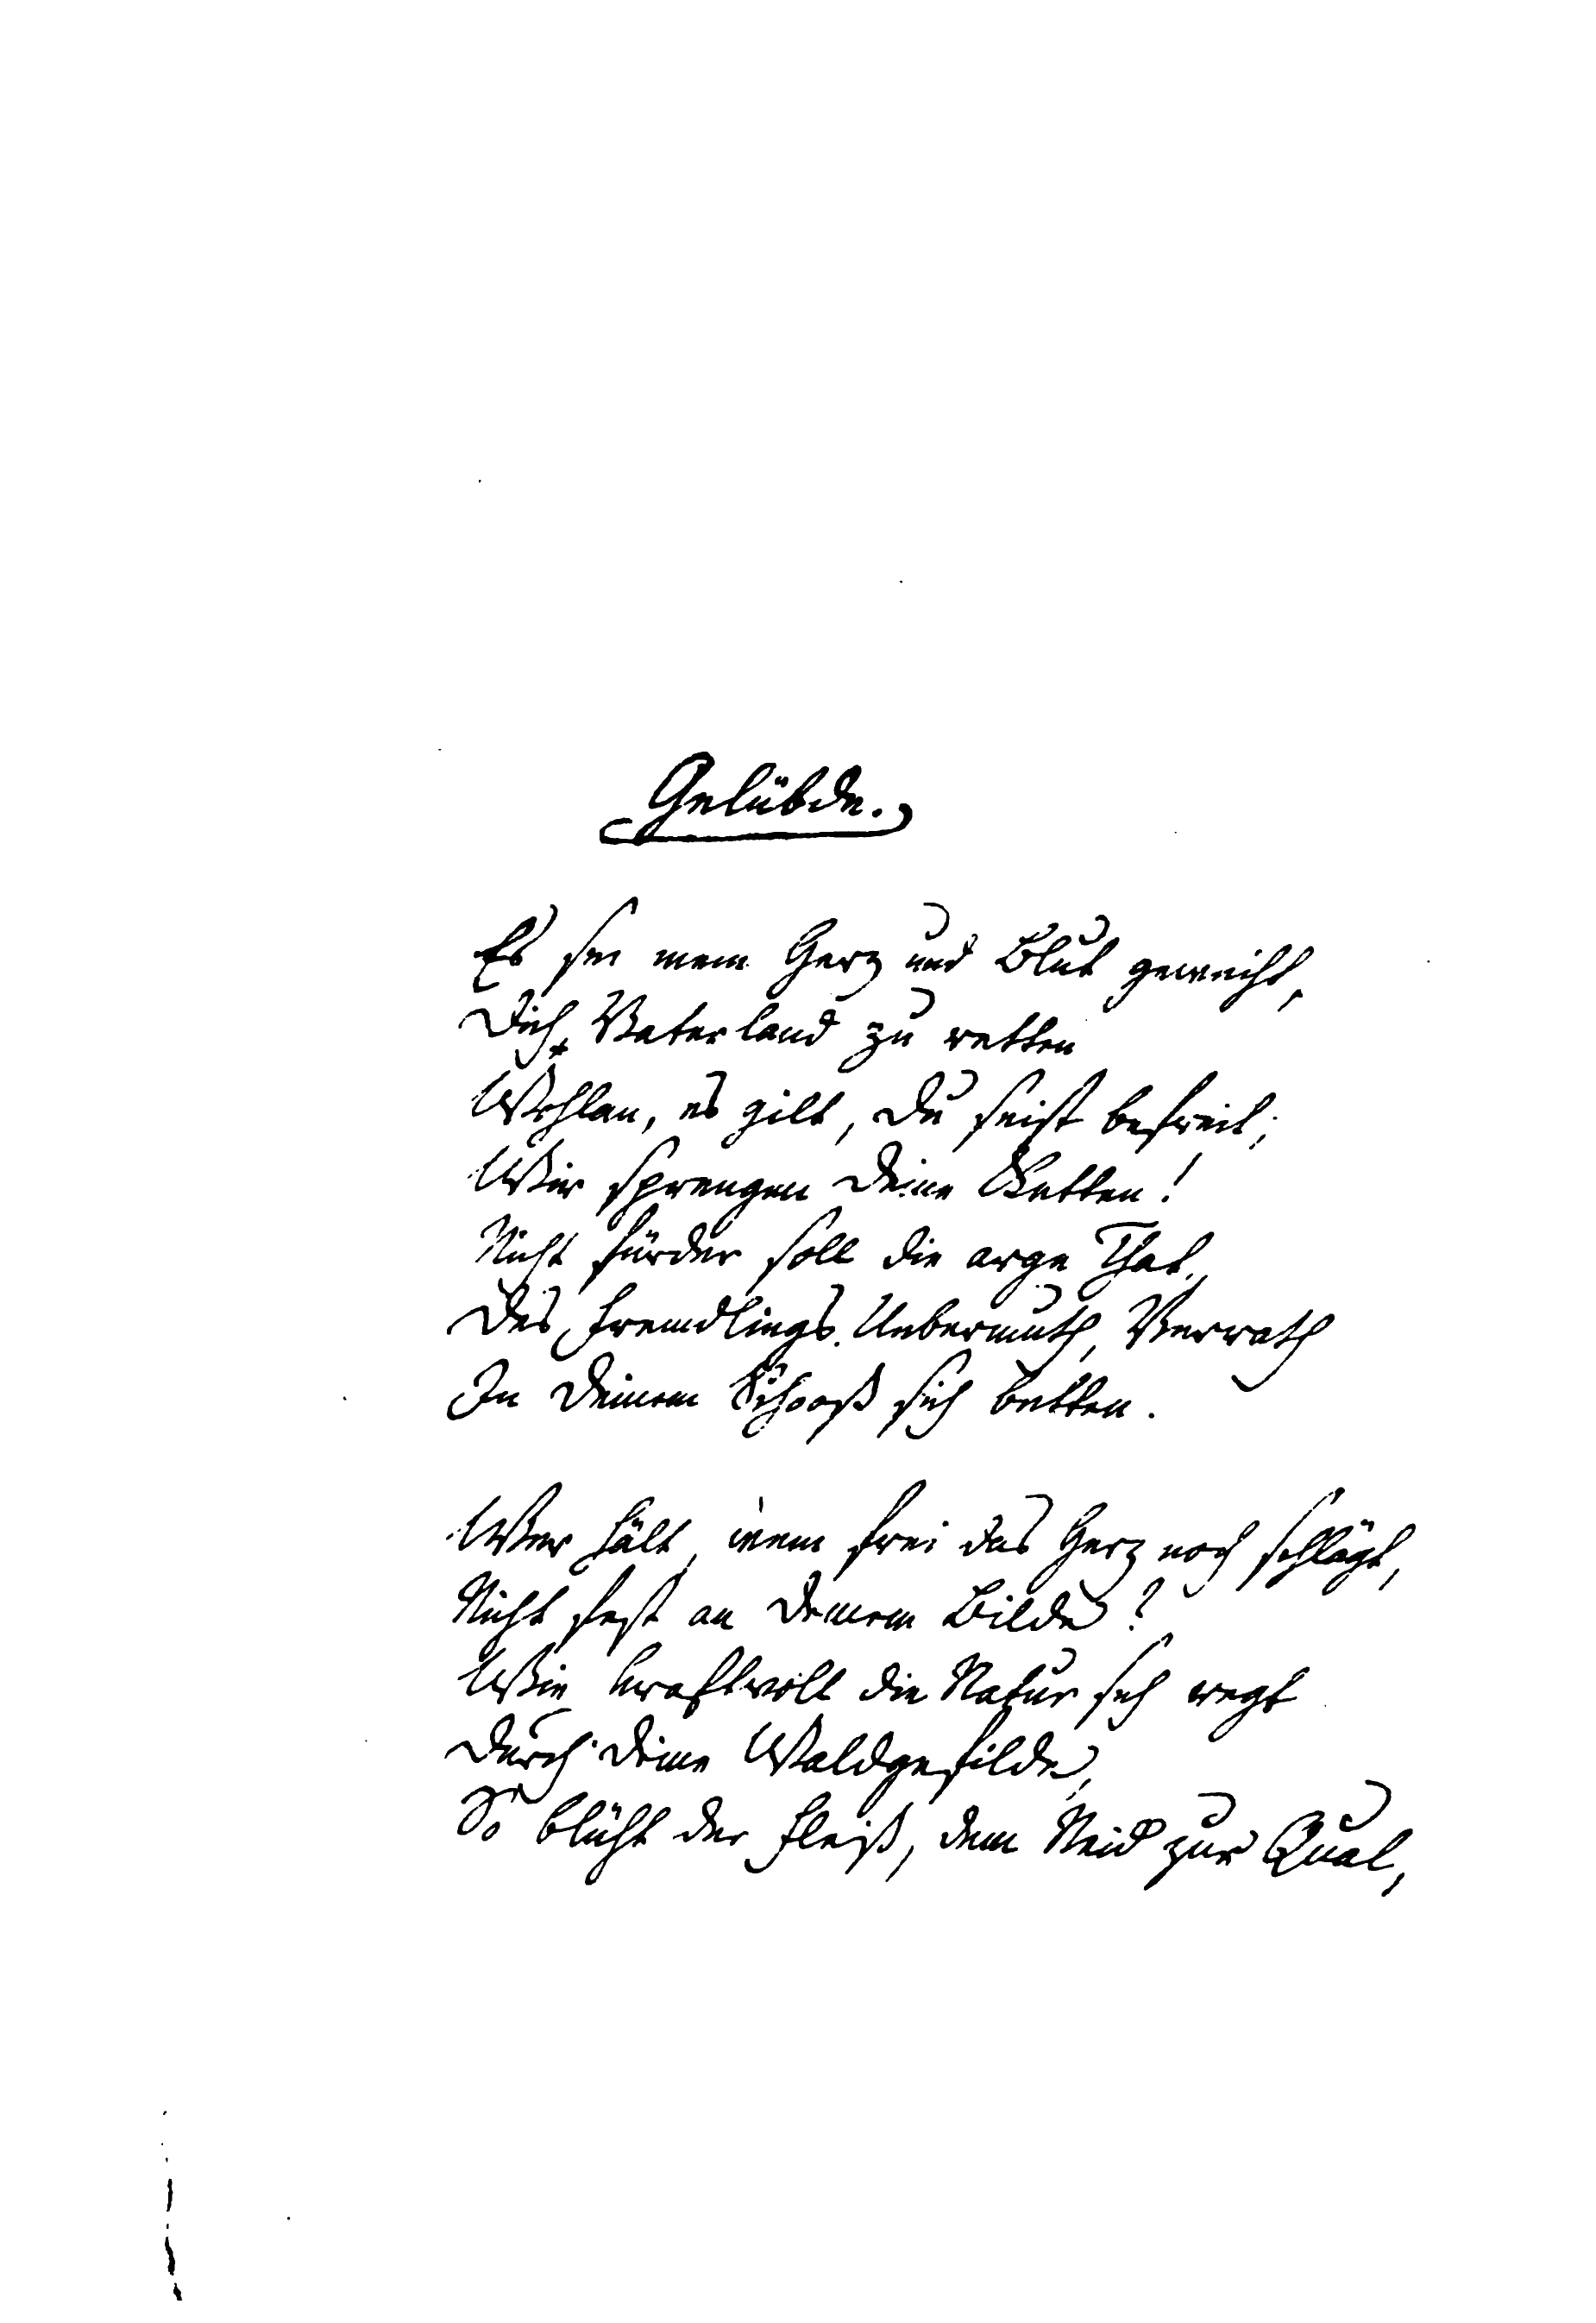 Gelübde.
Es sei mein Herz und Blut geweiht,
Dich, Vaterland zu retten
Wohlan, es gilt, Du seist befreit;
Wir sprengen Deine Ketten!
Nicht fürder soll die arge That,
Des Fremdlings Uebermuth, Verrath
In Deinem Schooß sich betten.
Wer hält, wem frei das Herz noch schlägt,
Nicht fest an Deinem Bilde?
Wie kraftvoll die Natur sich regt
Durch Deine Waldgefilde,
So blüht der Fleiß, dem Neid zur Qual,